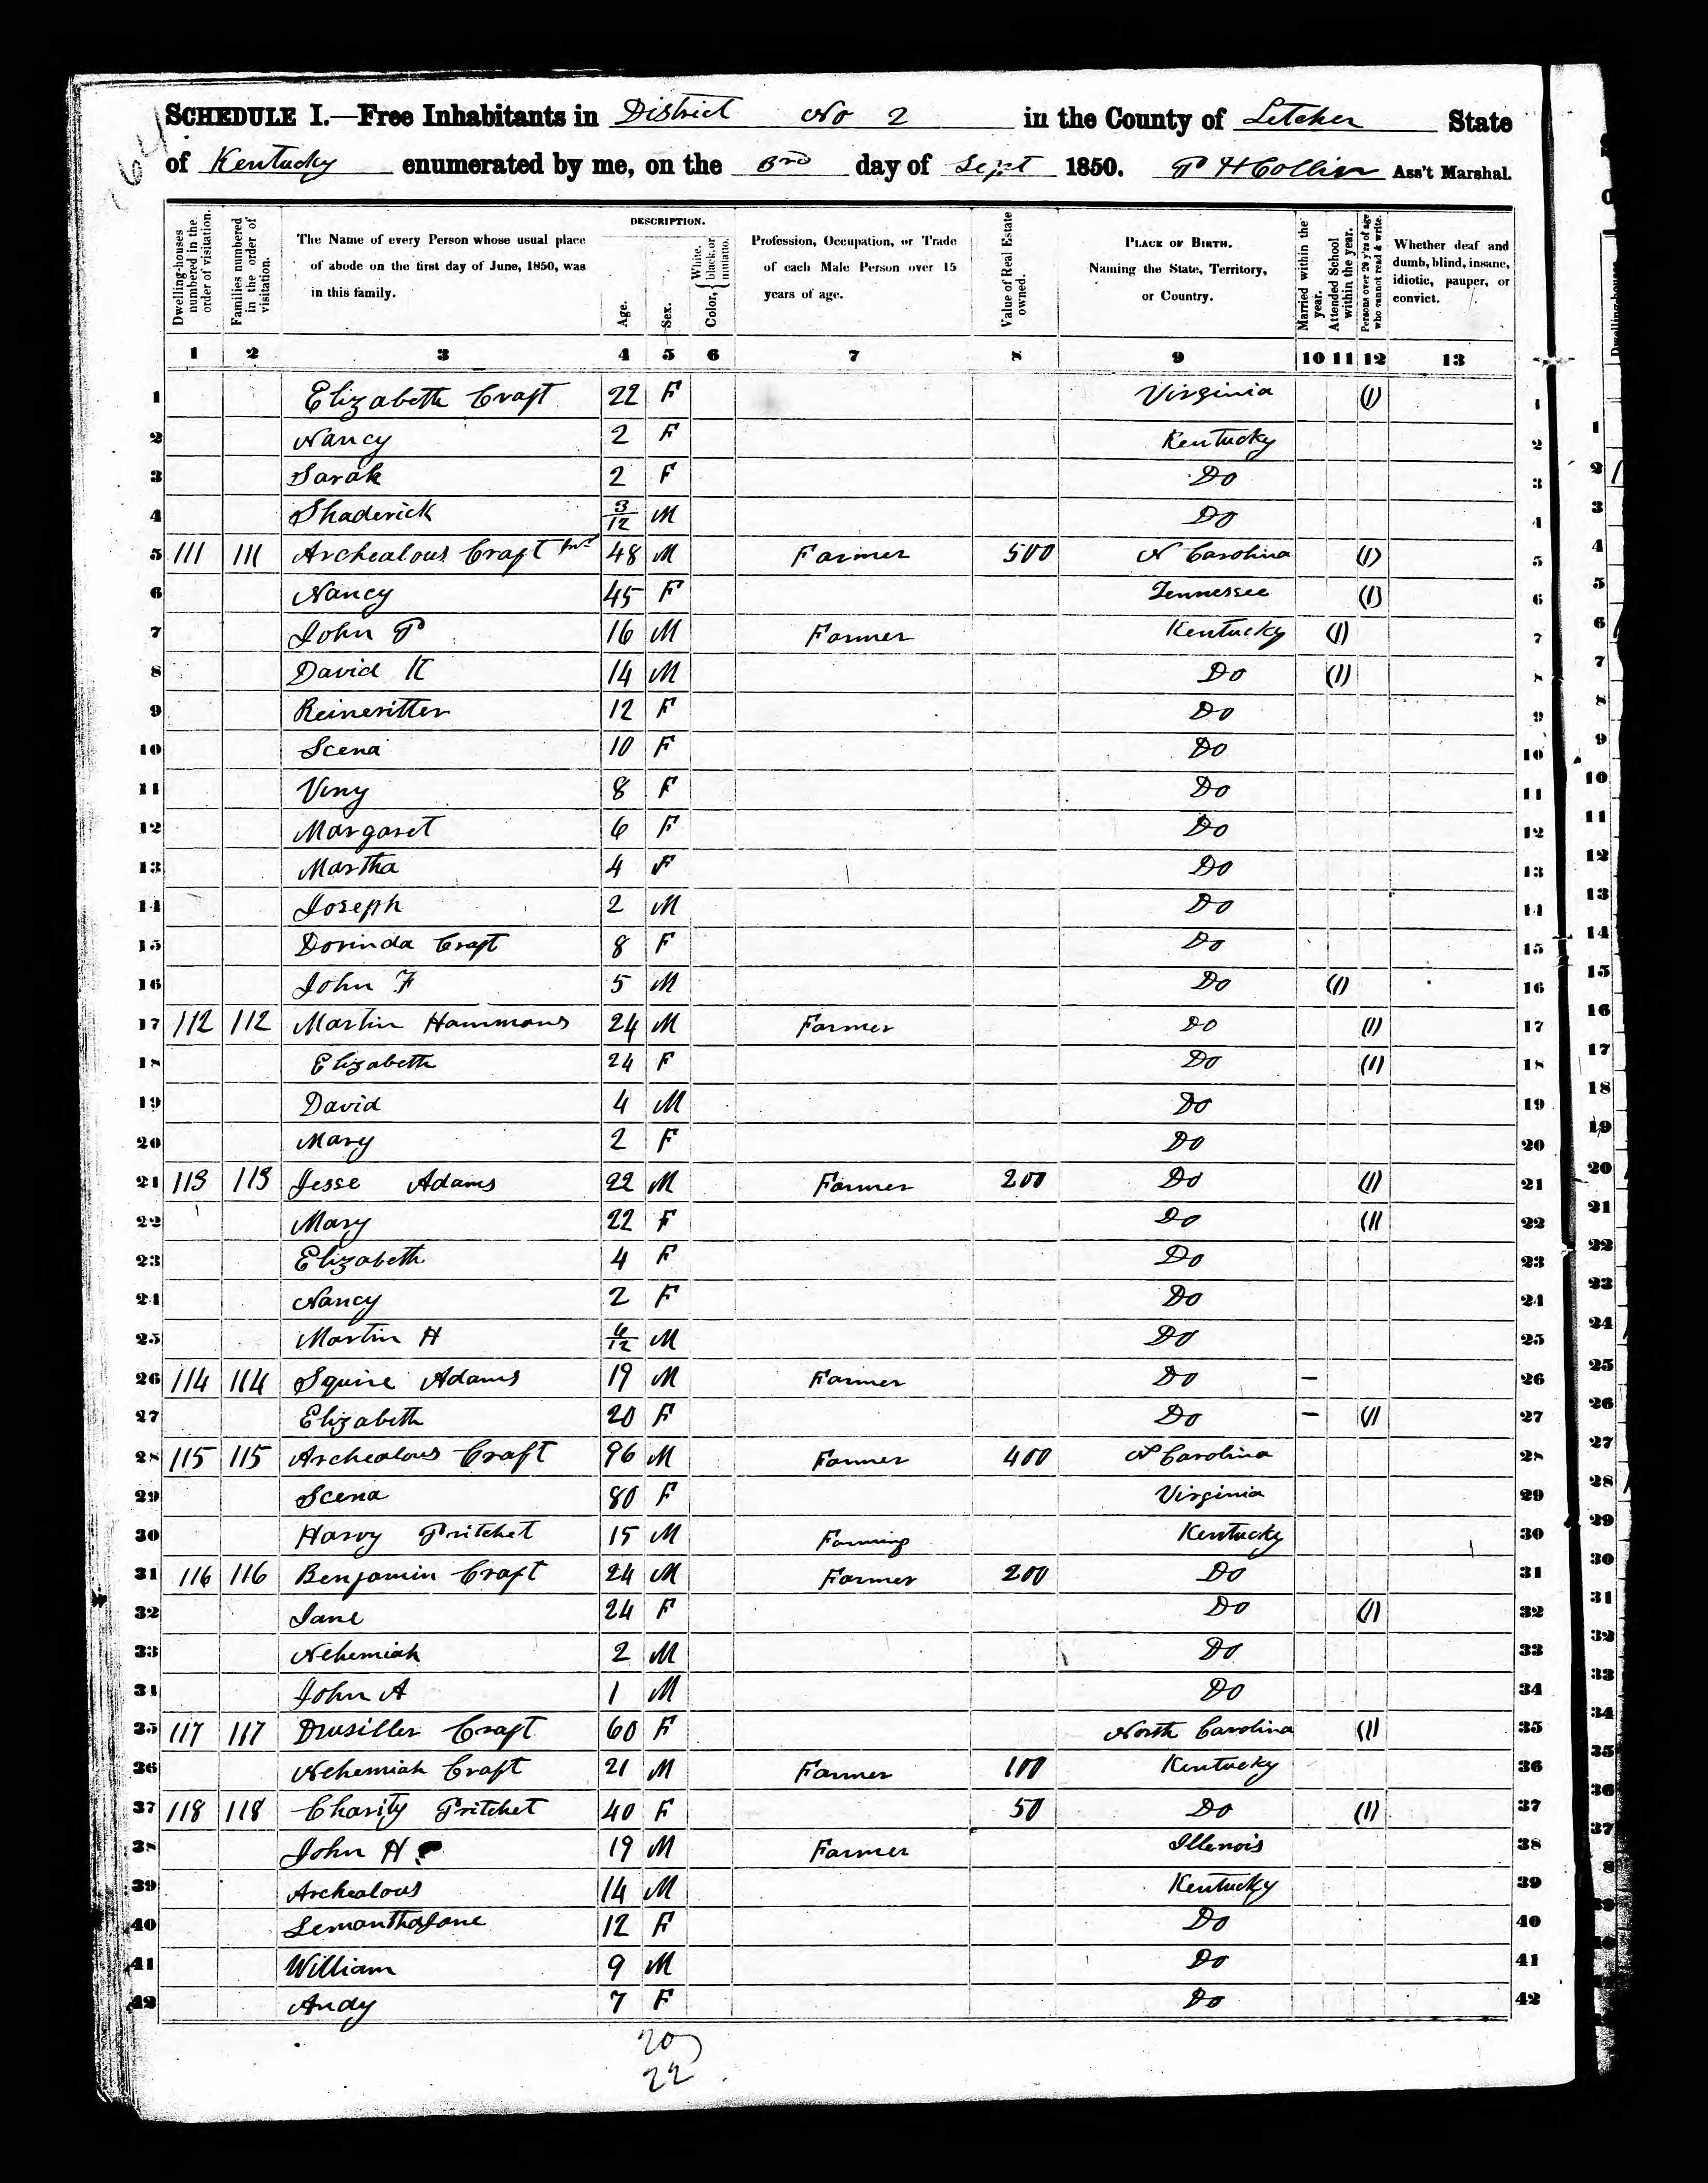 SCHEDULE I.—Free Inhabitants in District No 2 in the County of Letcher State
of Kentucky enumerated by me, on the 3rd day of Sept 1850. P H Collier Ass't Marshal.
Dwelling-houses numbered in the order of visitation.
Families numbered in the order of visitation.
The Name of every Person whose usual place of abode on the first day of June, 1850, was in this family.
DESCRIPTION.
Age.
Sex.
Color, { White, black, or mulatto.
Profession, Occupation, or Trade of each Male Person over 15 years of age.
Value of Real Estate owned.
PLACE OF BIRTH. Naming the State, Territory, or Country.
Married within the year.
Attended School within the year.
Persons over 20 y'rs of age who cannot read & write.
Whether deaf and dumb, blind, insane, idiotic, pauper, or convict.
1 2 3 4 5 6 7 8 9 10 11 12 13
1 Elizabeth Craft 22 F Virginia (1) 1
2 Nancy 2 F Kentucky 2
3 Sarah 2 F Do 3
4 Shaderick 3/12 M Do 4
5 111 111 Archealous Craft 48 M Farmer 500 N Carolina (1) 5
6 Nancy 45 F Tennessee (1) 6
7 John P 16 M Farmer Kentucky (1) 7
8 David K 14 M Do (1) 8
9 Reineritter 12 F Do 9
10 Scena 10 F Do 10
11 Viny 8 F Do 11
12 Margaret 6 F Do 12
13 Martha 4 F Do 13
14 Joseph 2 M Do 14
15 Dorinda Craft 8 F Do 15
16 John F 5 M Do (1) 16
17 112 112 Martin Hammons 24 M Farmer Do (1) 17
18 Elizabeth 24 F Do (1) 18
19 David 4 M Do 19
20 Mary 2 F Do 20
21 113 113 Jesse Adams 22 M Farmer 200 Do (1) 21
22 Mary 22 F Do (1) 22
23 Elizabeth 4 F Do 23
24 Nancy 2 F Do 24
25 Martin H 6/12 M Do 25
26 114 114 Squire Adams 19 M Farmer Do – 26
27 Elizabeth 20 F Do – (1) 27
28 115 115 Archealous Craft 96 M Farmer 400 N Carolina 28
29 Scena 80 F Virginia 29
30 Harvy Pritchet 15 M Farming Kentucky 30
31 116 116 Benjamin Craft 24 M Farmer 200 Do 31
32 Jane 24 F Do (1) 32
33 Nehemiah 2 M Do 33
34 John A 1 M Do 34
35 117 117 Drusiller Craft 60 F North Carolina (1) 35
36 Nehemiah Craft 21 M Farmer 100 Kentucky 36
37 118 118 Charity Pritchet 40 F 50 Do (1) 37
38 John H 19 M Farmer Illenois 38
39 Archealous 14 M Kentucky 39
40 Lemantha Jane 12 F Do 40
41 William 9 M Do 41
42 Andy 7 F Do 42
20
22